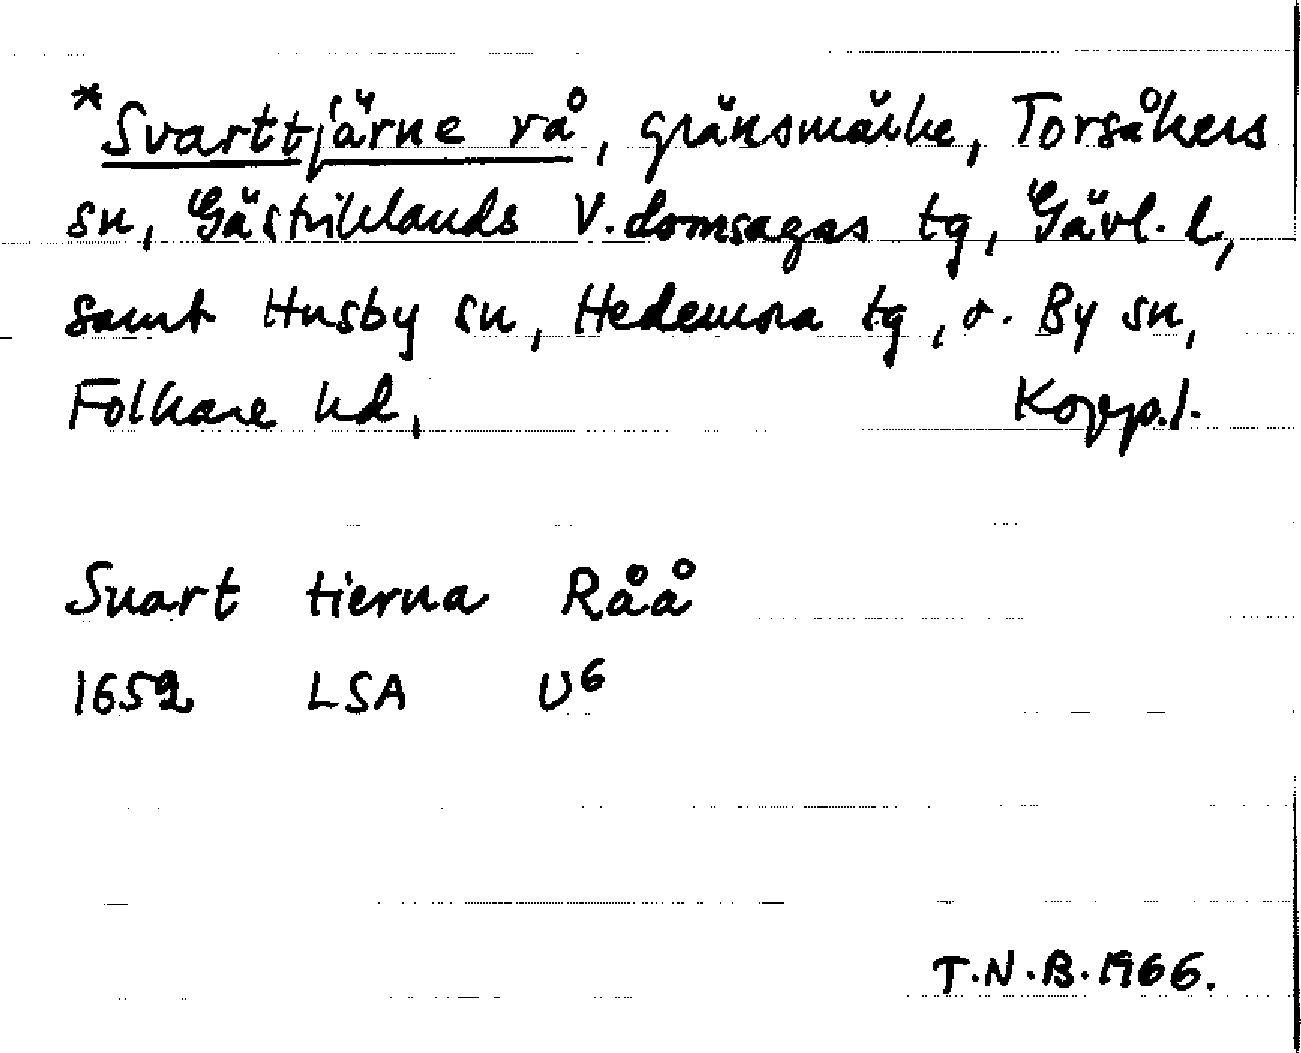 *Svarttjärne rå, gränsmärke, Torsåkers
sn, Gästriklands V. domsagas tg, Gävl. l,
samt Husby sn, Hedemora tg, o. By sn,
Folkare hd, Kopp.l.
Suart tierna Råå
1652 LSA U⁶
T.N.B. 1966.